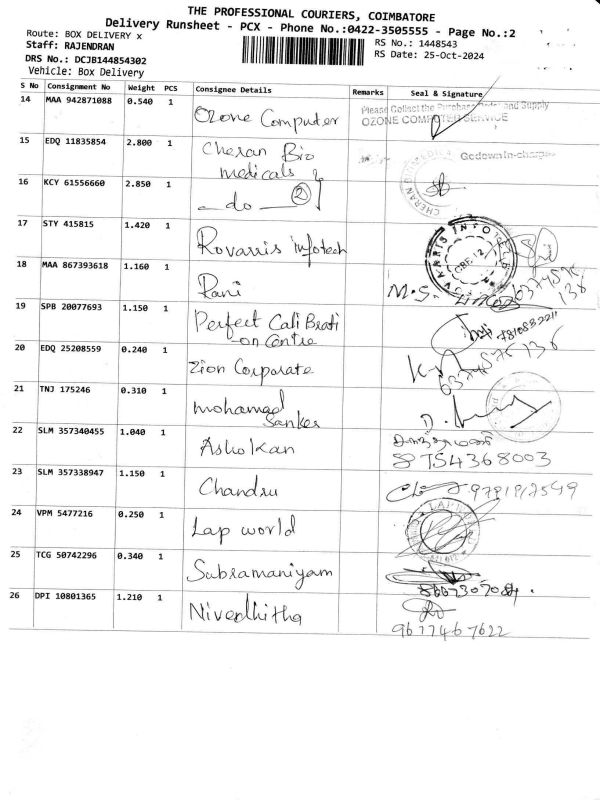 THE PROFESSIONAL COURIERS, COIMBATORE
Delivery Runsheet - PCX - Phone No.:0422-3505555 - Page No.:2
Route: BOX DELIVERY x
RS No.: 1448543
Staff: RAJENDRAN
RS Date: 25-Oct-2024
DRS No.: DCJB144854302
Vehicle: Box Delivery
S No Consignment No Weight PCS Consignee Details Remarks Seal & Signature
14 MAA 942871088 0.540 1 Ozone Computer
Please Collect the Purchase Order and Supply
OZONE COMPUTER SERVICE
15 EDQ 11835854 2.800 1 Cheran Bio medicals
Godown In-charge
16 KCY 61556660 2.850 1 - do - 2
CHERAN BIOMEDICA
17 STY 415815 1.420 1 Rovarris infotech
CBE-12
18 MAA 867393618 1.160 1 Rani
M.S.
19 SPB 20077693 1.150 1 Perfect CaliBrati
-on Centre
20 EDQ 25208559 0.240 1 Zion Corporate
21 TNJ 175246 0.310 1 mohamad
Sanker
22 SLM 357340455 1.040 1 Ashokan
8754368003
23 SLM 357338947 1.150 1 Chandru
24 VPM 5477216 0.250 1 Lap world
25 TCG 50742296 0.340 1 Subramaniyam
26 DPI 10801365 1.210 1 Nivedhitha
9677467622